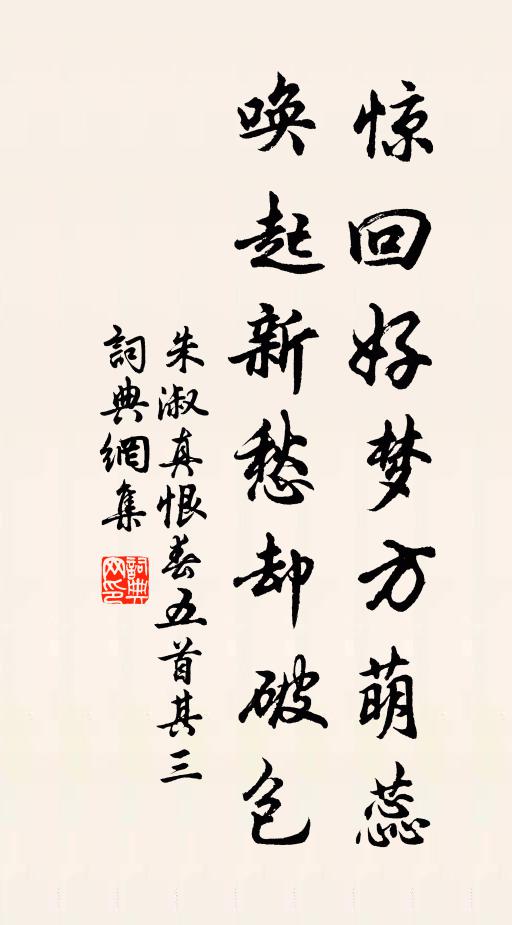 惊回好梦方萌蕊
唤起新愁却破包
朱淑真恨春五首其三
詞典網集
詞典网印